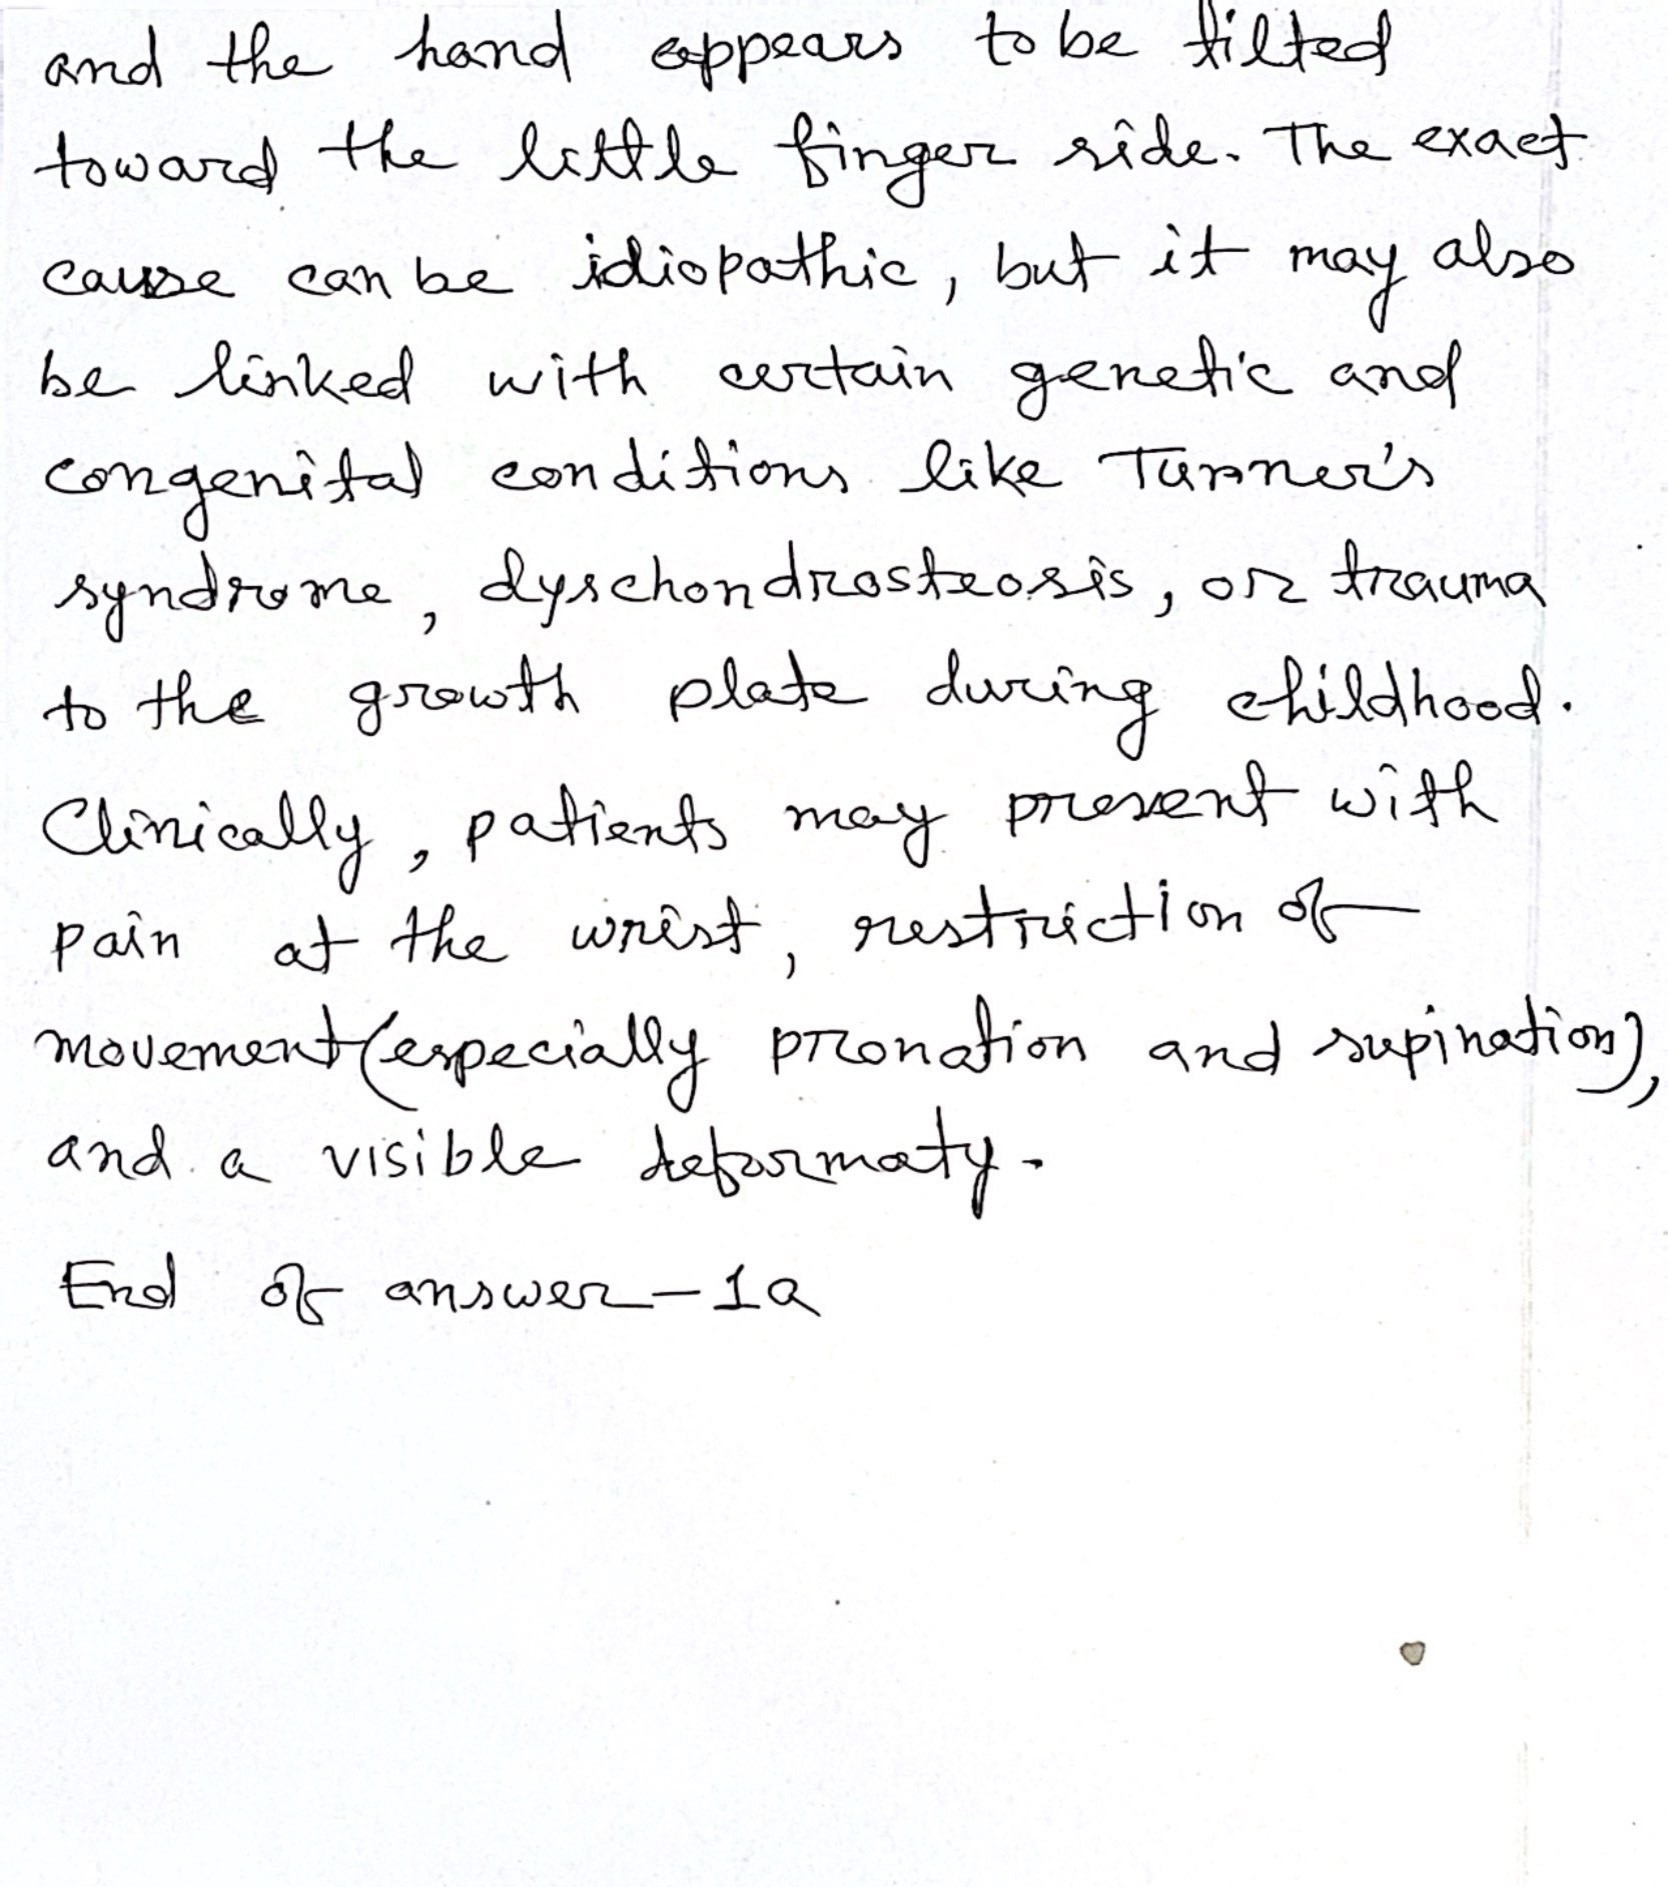 and the hand appears to be tilted
toward the little finger side. The exact
cause can be idiopathic, but it may also
be linked with certain genetic and
congenital conditions like Turner's
syndrome, dyschondrosteosis, or trauma
to the growth plate during childhood.
Clinically, patients may present with
pain at the wrist, restriction of
movement (especially pronation and supination),
and a visible deformaty.
End of answer-1a